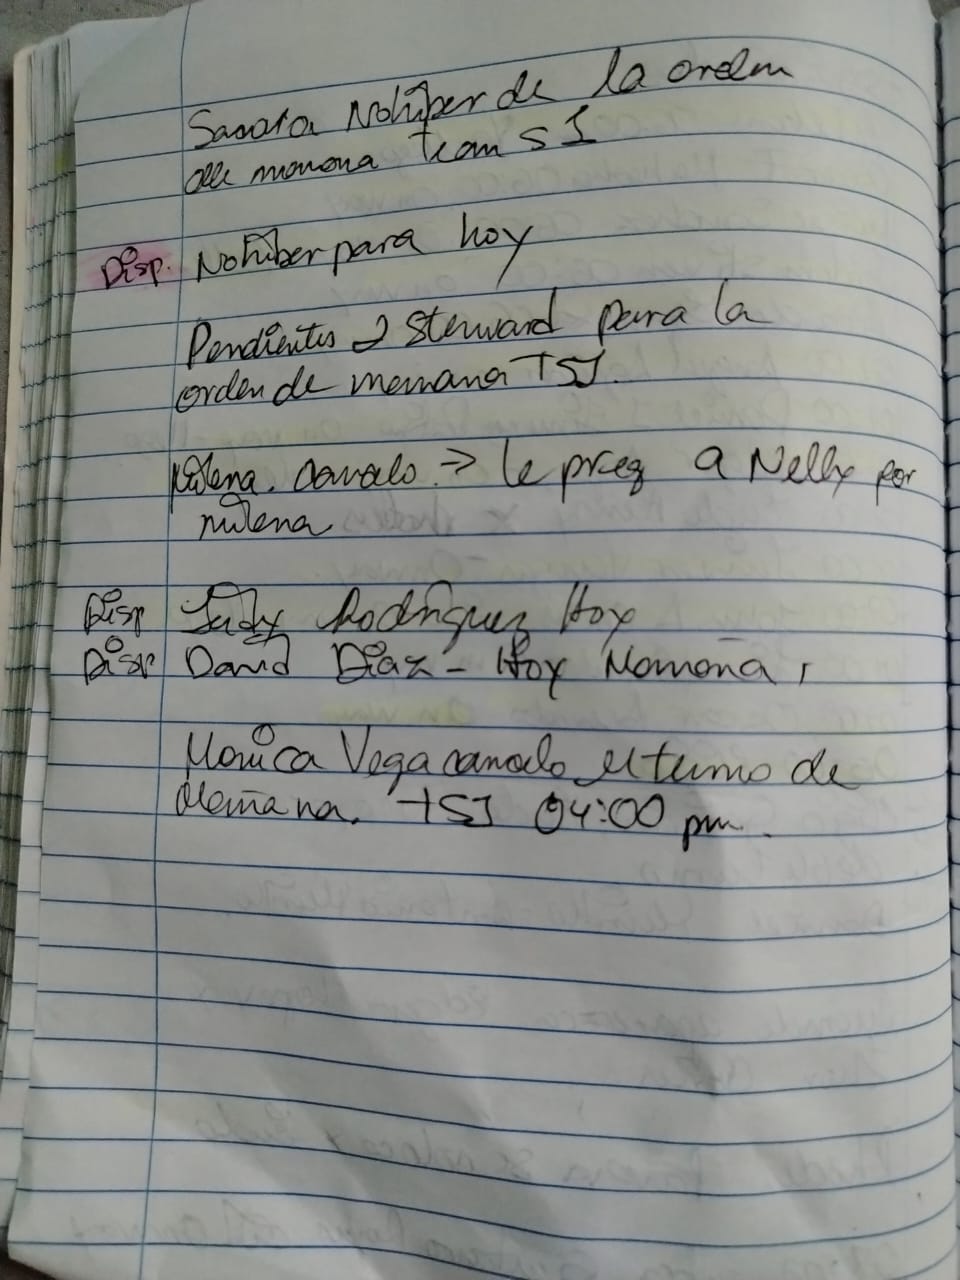 Sacara Nohiber de la orden
de manana team S J
Disp. Nohiber para hoy
Pendientes 2 Steward para la
orden de manana TSJ.
Milena. cancelo. → le preg a Nelly por
milena
Disp Judy Rodriguez Hoy
Disp David Diaz - Hoy Manana,
Monica Vega cancelo el turno de
Mañana. TSJ 04:00 pm.